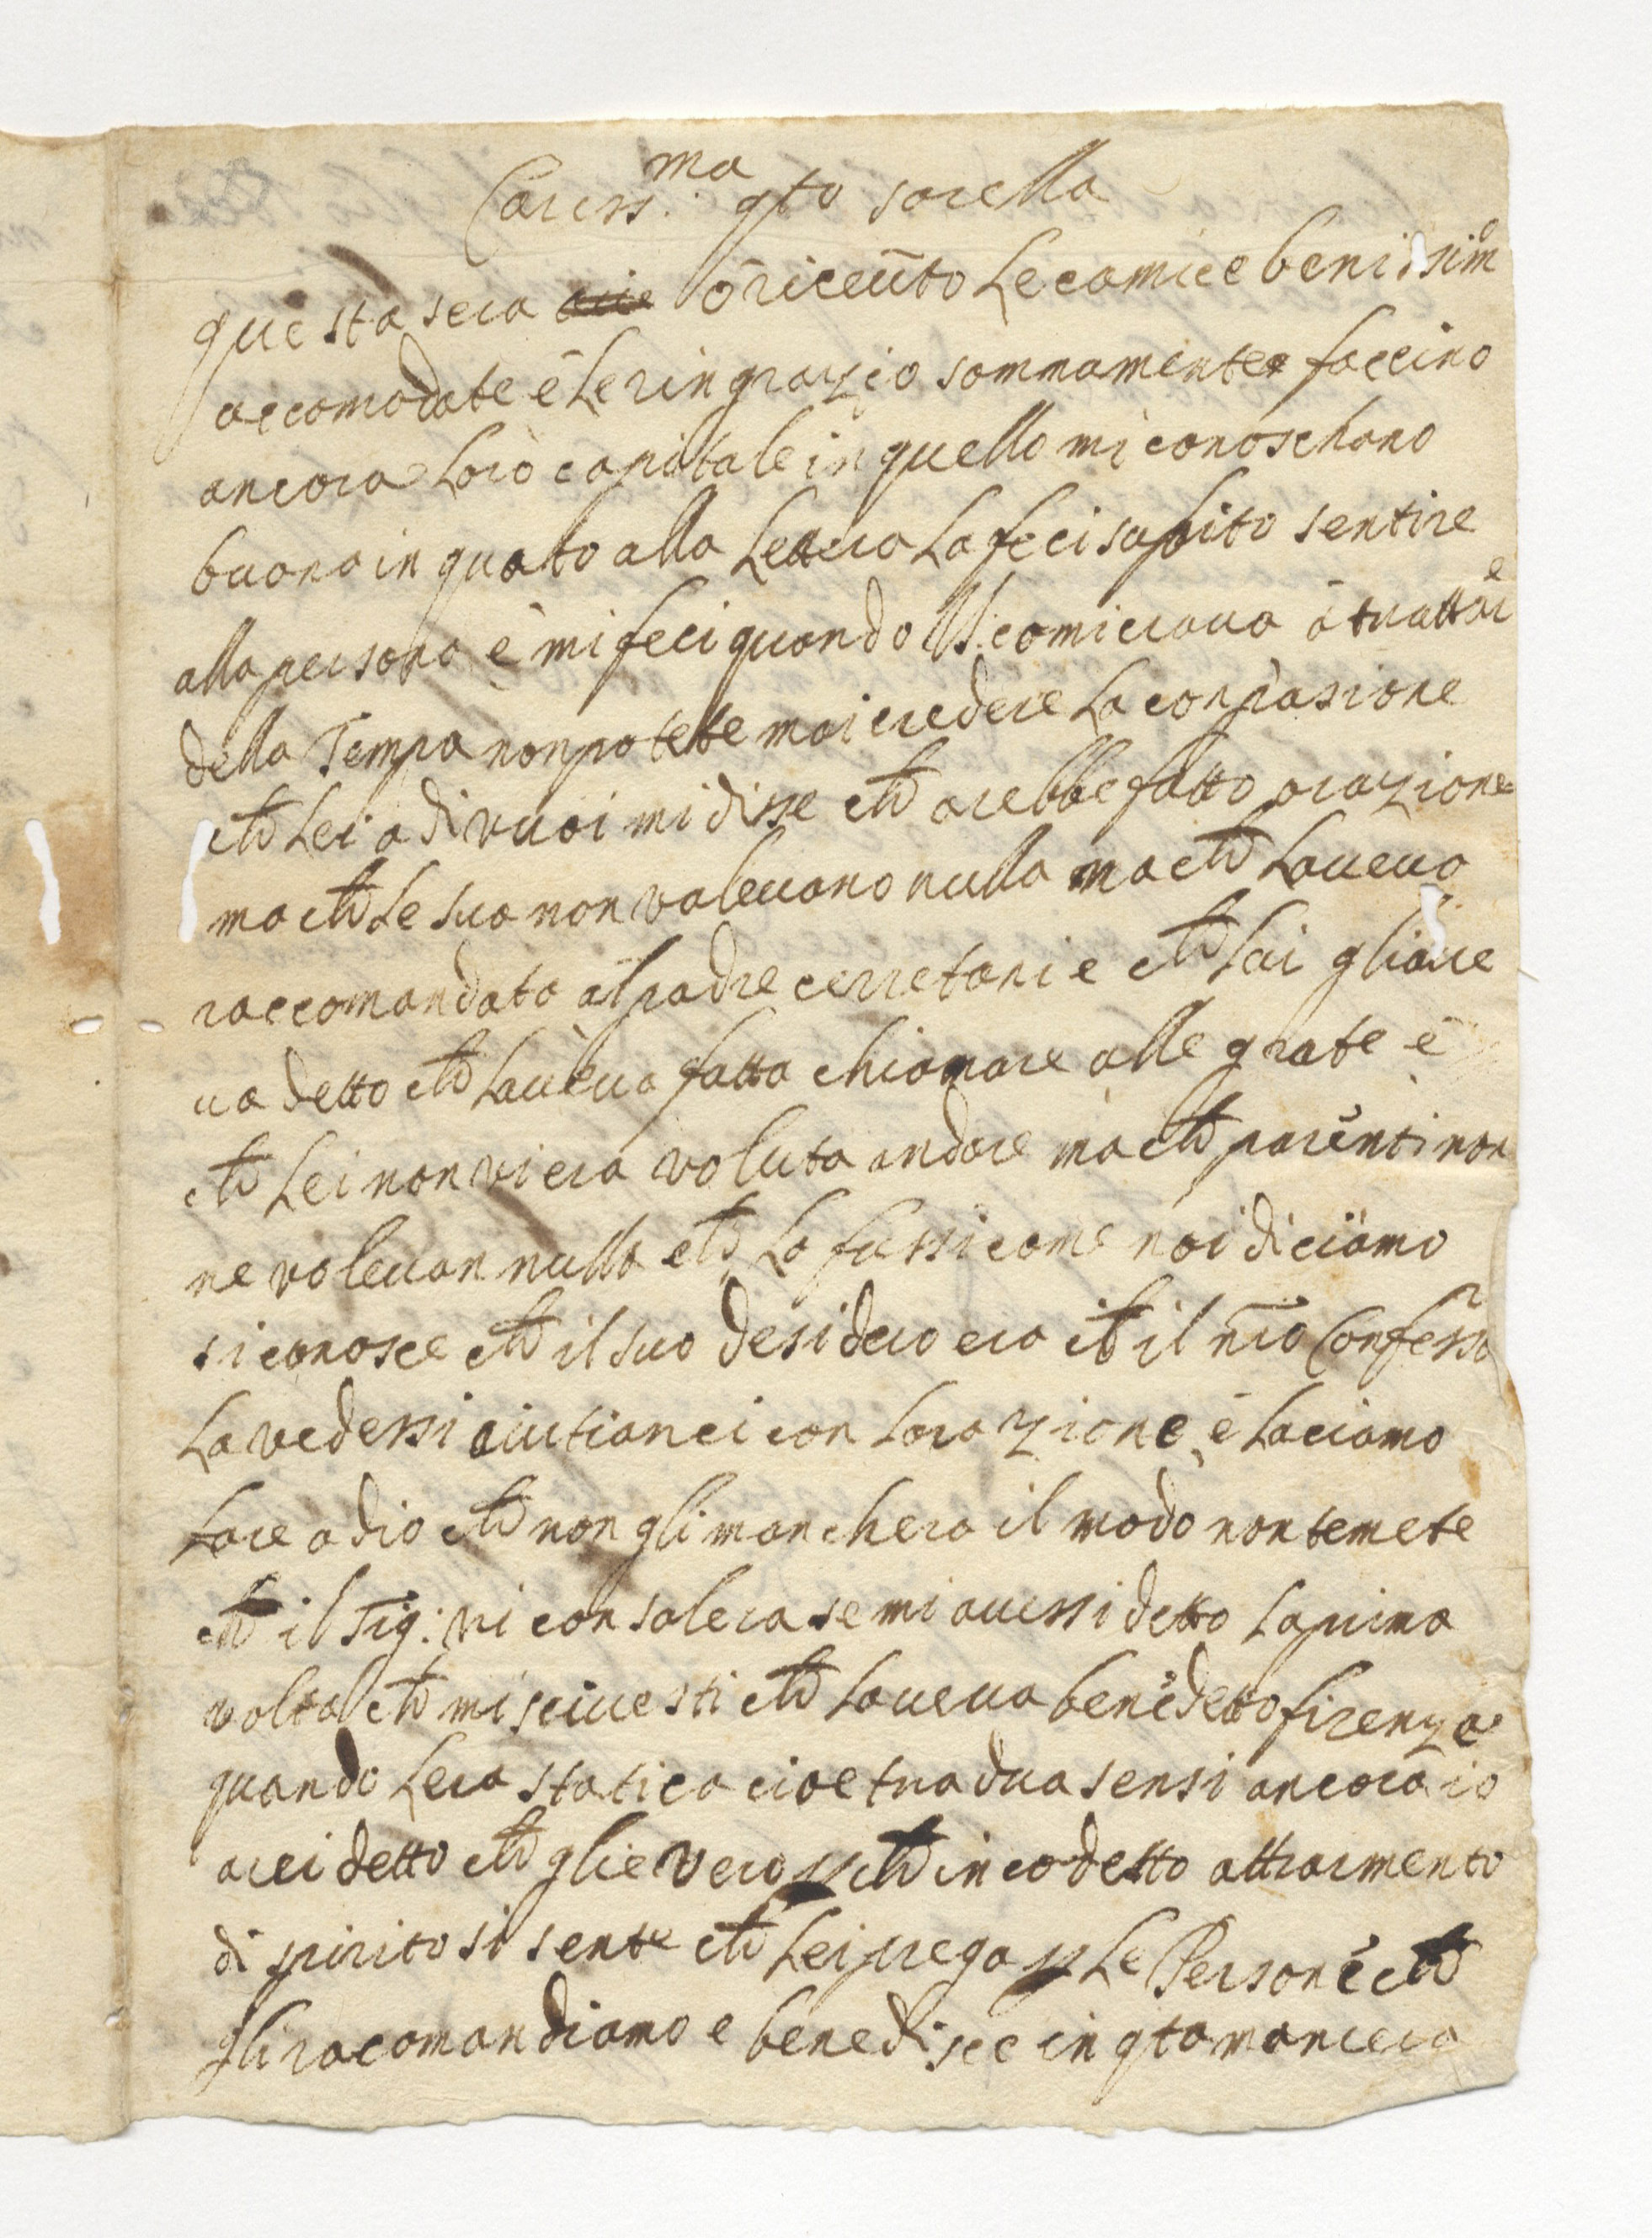 Cariss.ma qto sorella
questa sera ō riceuūto Le camice benissimo
accomodate e Le ringrazio sommamente faccino
ancora Loro capitale in quello mi conoschano
buona in quato alla Lettera La feci supito sentire
alla persona e mi feci quando VS. comiciava a trattare
della Tempa non potete mai credere La conpasione
che Lei a di vuoi mi disse che arebbe fatto orazione
ma che Le sua non valevano nulla ma che Laveva
raccomandata al padre cerretani e che Lui gliave
va detto che Laveva fatta chiamare alle grate e
che Lei non viera voluta andare ma che parenti non
ne volevan nulla che La fussi come noi diciamo
si conosce che il suo desidero era che il nro Confessor
La vedessi aiutianci con Lorazione e Laciamo
fare a dio che non gli manchera il modo non temete
che il Sig: vi consolera se mi avessi detto La prima
volta che mi scrivesti che Laveva benedetto firenze
quando Lera statica cioe tra dua sensi ancora io
arei detto che glie vero p che in co detto attraimento
di spirito si sente che Lei prega p Le Persone che
gli racomandiamo e benedisce in qta maniera